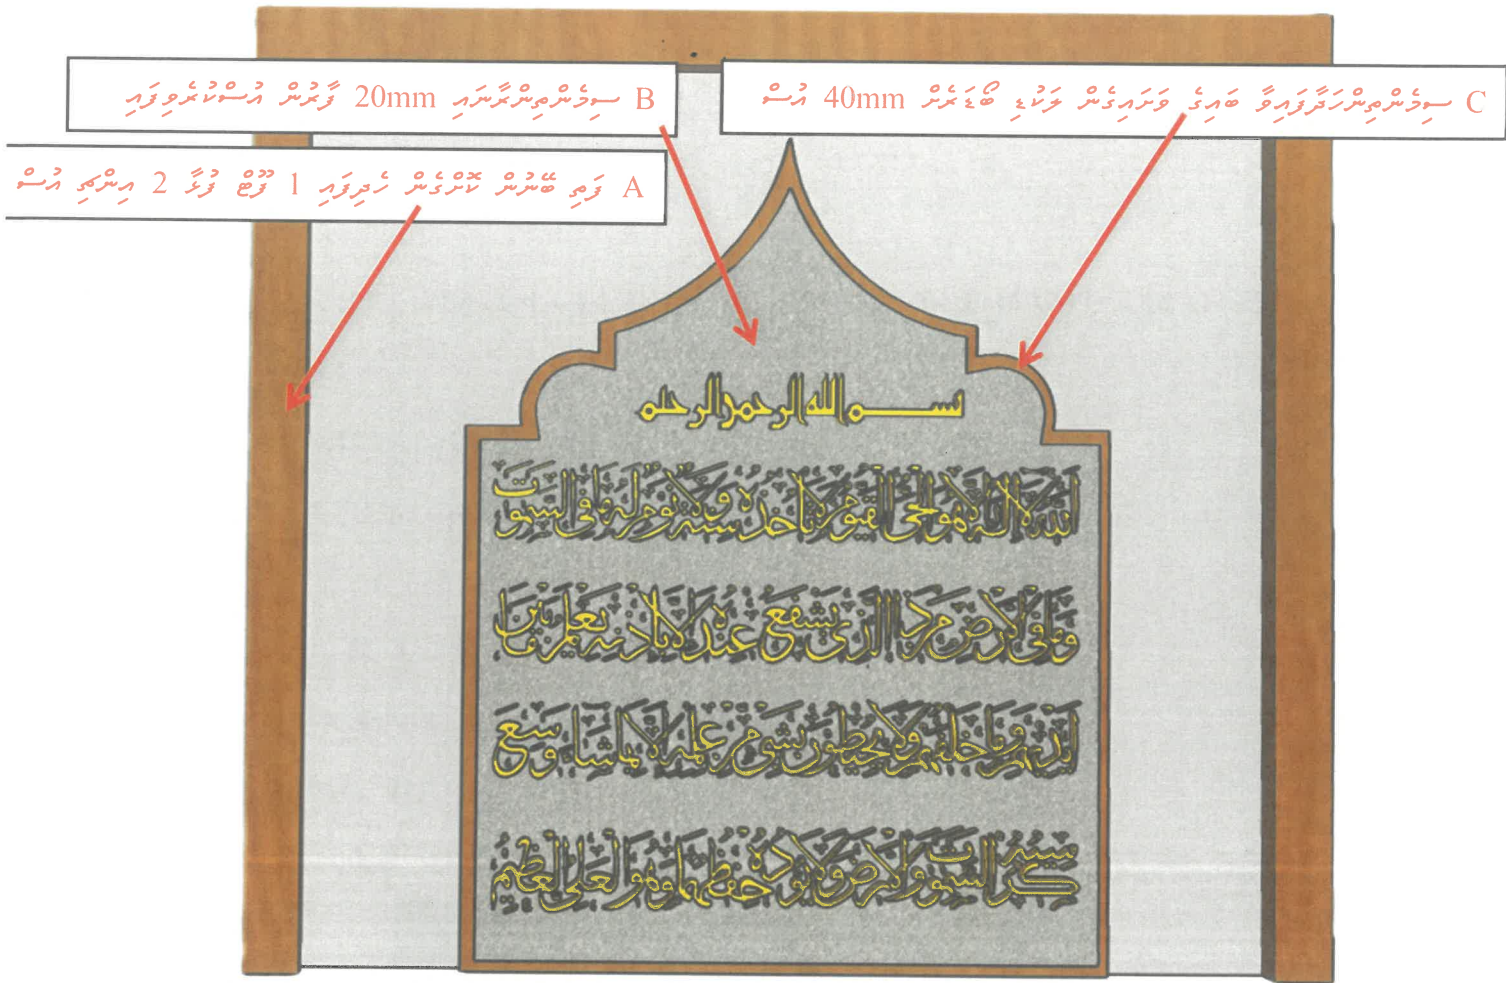 B ސިމެންތިންރާނައި 20mm ފާރުން އުސްކުރެވިފައި
C ސިމެންތިންހަދާފައިވާ ބައިގެ ވަށައިގެން ލަކުޑި ބޯޑަރެށް 40mm އުސް
A ފަތި ބޭނުން ކޮށްގެން ހެދިފައި 1 ފޫޓް ފުޅާ 2 އިންޗި އުސް
بسم الله الرحمن الرحيم
الله لا إله إلا هو الحي القيوم لا تأخذه سنة ولا نوم له ما في السموت
وما في الأرض من ذا الذي يشفع عنده إلا بإذنه يعلم ما بين
أيديهم وما خلفهم ولا يحيطون بشيء من علمه إلا بما شاء وسع
كرسيه السموت والأرض ولا يؤده حفظهما وهو العلي العظيم